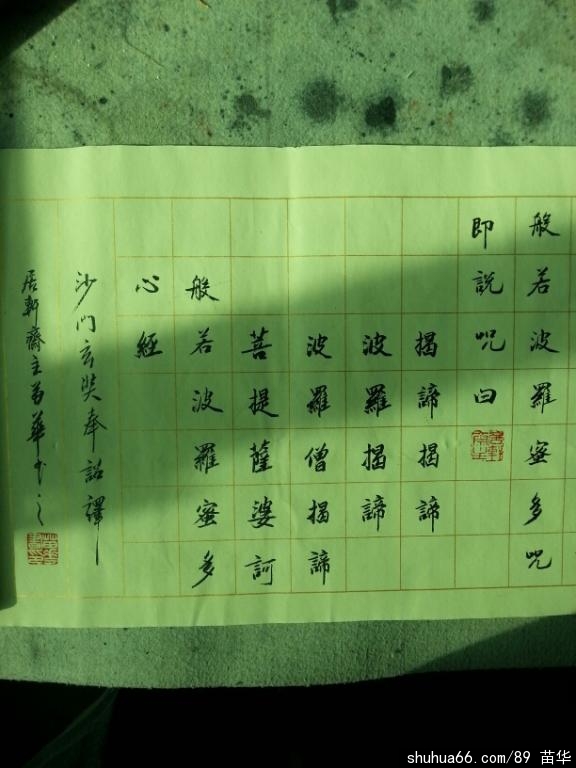 般若波羅蜜多咒
即說咒曰
揭諦揭諦
波羅揭諦
波羅僧揭諦
菩提薩婆訶
般若波羅蜜多
心經
沙門玄奘奉詔譯
居軒齋主苗華書之
shuhua66.com/89 苗华